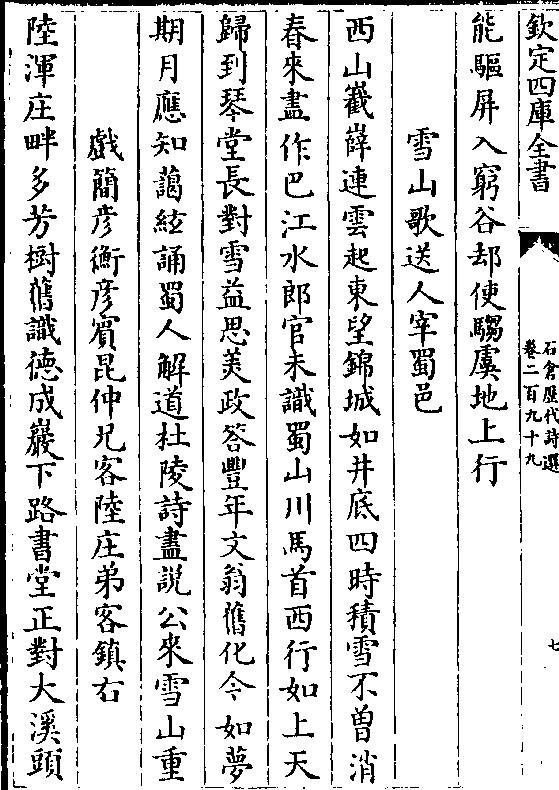 欽定四庫全書
石倉歴代詩選
卷二百九十九
七
能驅屏入窮谷却使騶虞地上行
雪山歌送人宰蜀邑
西山嶻嶭連雲起東望錦城如井底四時積雪不曽消
春來盡作巴江水郎官未識蜀山川馬首西行如上天
歸到琴堂長對雪益思美政答豐年文翁舊化今如夢
期月應知藹絃誦蜀人解道杜陵詩盡説公來雪山重
戲簡彦衡彦賓昆仲兄客陸庄弟客鎮右
陸渾庄畔多芳樹舊識徳成巖下路書堂正對大溪頭